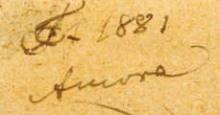 1881
Amora